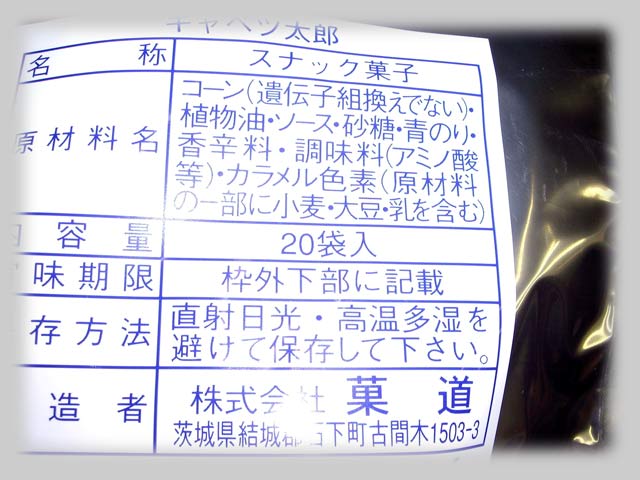 キャベツ太郎
名称 スナック菓子
原材料名 コーン(遺伝子組換えでない)・
植物油・ソース・砂糖・青のり・
香辛料・調味料(アミノ酸
等)・カラメル色素(原材料
の一部に小麦・大豆・乳を含む)
内容量 20袋入
味期限 枠外下部に記載
存方法 直射日光・高温多湿を
避けて保存して下さい。
造者 株式会社 菓道
茨城県結城郡石下町古間木1503-3